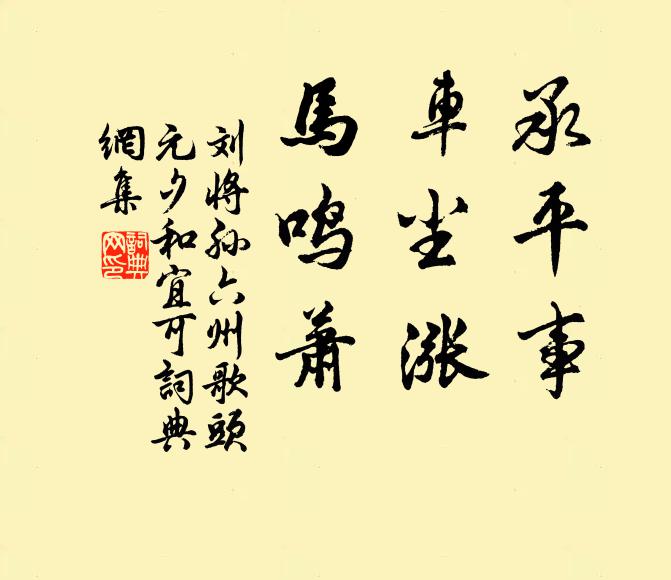 承平事
車尘漲
馬鸣蕭
刘将孙六州歌頭
元夕和宜可詞典
網集
詞典网印